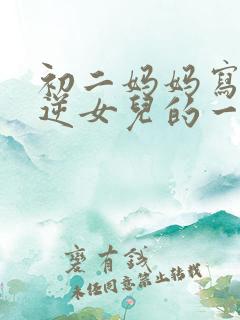 初二妈妈寫
逆女兒的一
有錢
未经同意禁止转载